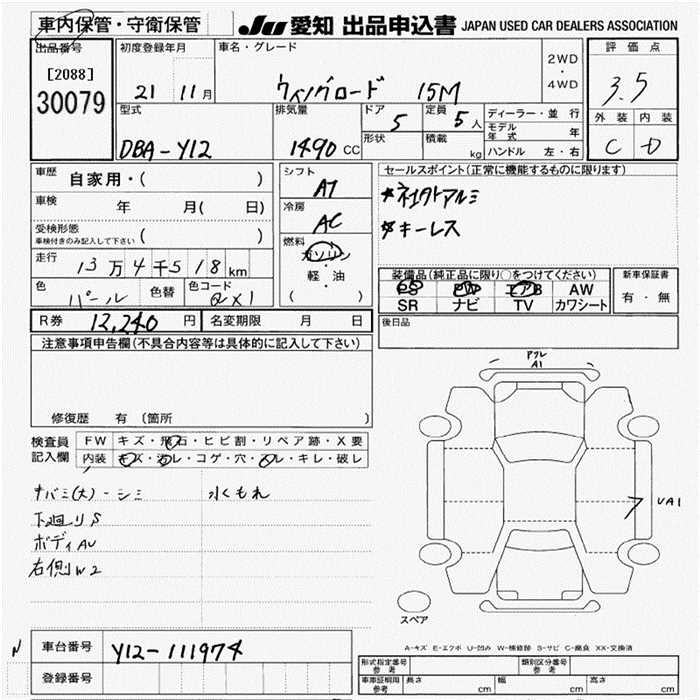 車内保管・守衛保管
JU 愛知 出品申込書 JAPAN USED CAR DEALERS ASSOCIATION
出品番号
[2088]
30079
初度登録年月
21 11月
車名・グレード
ウイングロード 15M
2WD
・
4WD
評価点
3.5
外装 内装
C D
型式
DBA-Y12
排気量
1490 CC
ドア
5
形状
定員
5人
積載
kg
ディーラー・並行
モデル年式 年
ハンドル 左・右
車歴 自家用・( )
車検 年 月( 日)
受検形態
車検付きのみ記入して下さい ( )
走行 13万4千518km
色 パール 色替 色コード QX1
シフト
AT
冷房
AC
燃料
ガソリン
・
軽・油
( )
セールスポイント(正常に機能するものに限ります)
*キーレス
装備品(純正品に限り○をつけてください)
PS PW エアB AW
SR ナビ TV カワシート
新車保証書
有・無
R券 12,240 円 名変期限 月 日
後日品
注意事項申告欄(不具合内容等は具体的に記入して下さい)
修復歴 有 〔箇所 〕
検査員記入欄
FW キズ・飛石・ヒビ割・リペア跡・X要
内装 キズ・汚レ・コゲ・穴・スレ・キレ・破レ
シミ 水くもれ
下廻りS
ボディAU
右側W2
アクレ
A1
UA1
スペア
A-キズ E-エクボ U-凹み W-補修跡 S-サビ C-腐食 XX-交換済
N
車台番号 Y12-111974
登録番号
形式指定番号
参考
類別区分番号
参考
車庫証明用
参考
長さ cm 幅 cm 高さ cm